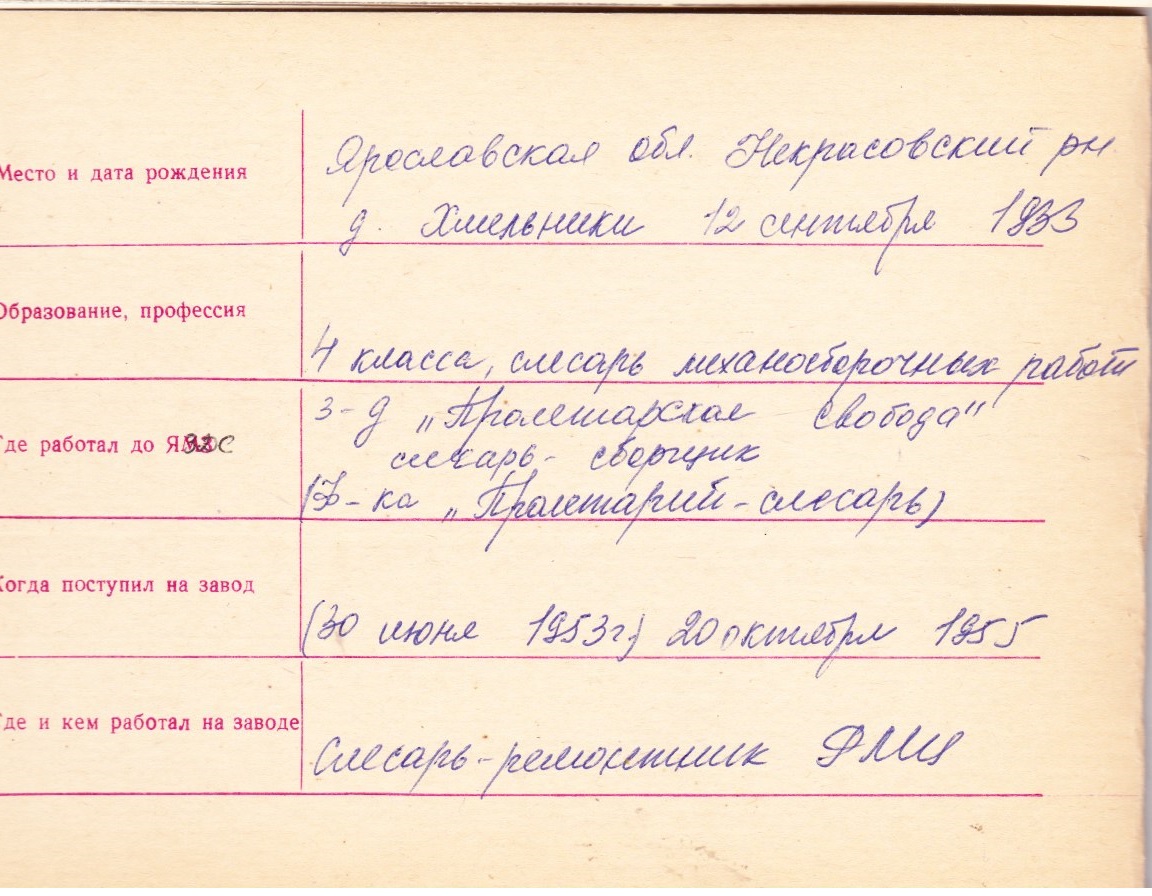 Место и дата рождения
Ярославская обл. Некрасовский рн
д. Хмельники 12 сентября 1933
Образование, профессия
4 класса, слесарь механосборочных работ
Где работал до
з-д „Пролетарская свобода"
слесарь- сборщик
(ф-ка „Пролетарий-слесарь)
Когда поступил на завод
(30 июня 1953г.) 20 октября 1955
Где и кем работал на заводе
Слесарь-ремонтник